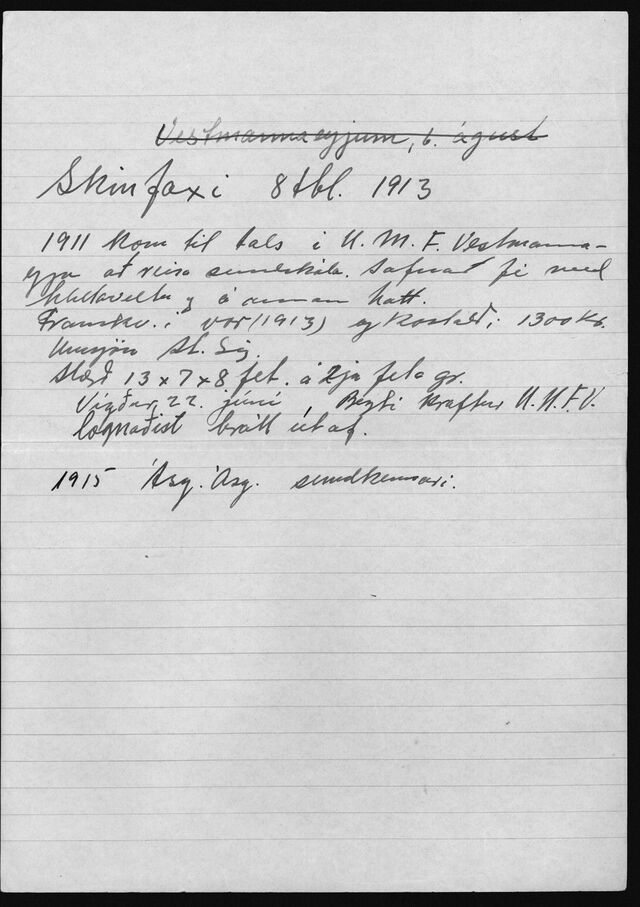 Vestmannaeyjum, 6. ágúst
Skinfaxi 8 tbl. 1913
1911 kom til tals í U. M. F. Vestmanna-
eyja að reisa sundskála. Safnað fé með
hlutaveltu og á annan hátt.
Framkv. í vor (1913) og kostaði 1300 kr.
Umsjón St. Sig.
Stærð 13 x 7 x 8 fet. á 2ja feta gr.
Vígður 22. júní Bezti kraftur U. M. F. V.
lognaðist brátt útaf.
1915 Ásg. Ásg. sundkennari.